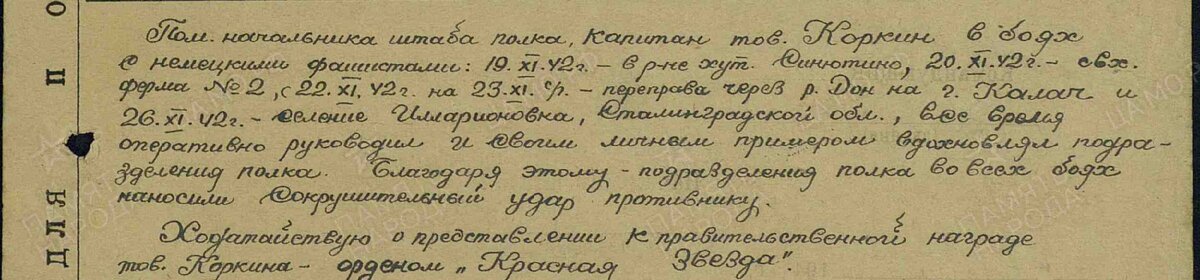 Пом. начальника штаба полка, капитан тов. Коркин в боях
с немецкими фашистами: 19.XI.42г. – в р-не хут. Синютино, 20.XI.42г. – свх.
ферма №2, с 22.XI.42г. на 23.XI. с/г. – переправа через р. Дон на г. Калач и
26.XI.42г. – селение Илларионовка, Сталинградской обл., все время
оперативно руководил и своим личным примером вдохновлял подра-
зделения полка. Благодаря этому – подразделения полка во всех боях
наносили сокрушительный удар противнику.
Ходатайствую о представлении к правительственной награде
тов. Коркина – орденом „Красная Звезда".
ДЛЯ ПО